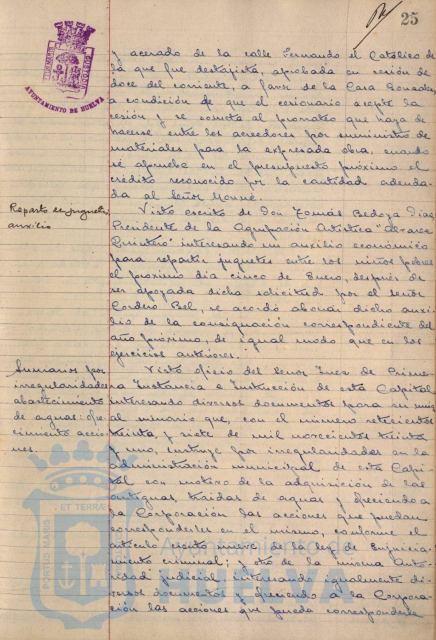 25
AYUNTAMIENTO DE HUELVA
y acerado de la calle Fernando el Católico de
la que fue destajista, aprobada en sesión de
doce del corriente, a favor de la Casa Gonzalez,
a condición de que el cesionario acepte la
cesión y se someta al prorrateo que haya de
hacerse entre los acreedores por suministro de
materiales para la expresada obra, cuando
se apruebe en el presupuesto próximo el
crédito reconocido por la cantidad adeuda-
da al Señor
Reparto en juguetes:
auxilio
Visto escrito de Don Tomás Bedoya Diaz,
Presidente de la Agrupación Artística "Alvarez
Quintero" interesando un auxilio económico
para repartir juguetes entre los niños pobres
el próximo dia cinco de Enero, después de
ser apoyada dicha solicitud por el Señor
Cordero Bel, se acordó abonar dicho auxi-
lio de la consignación correspondiente del
año próximo, de igual modo que en los
ejercicios anteriores.
Sumarios por
irregularidades
abastecimiento
de aguas: ofre-
cimiento accio-
nes.
Visto oficio del Señor Juez de Prime-
ra Instancia e Instrucción de esta Capital
interesando diversos documentos para su unión
al sumario que, con el número
treinta y siete de mil novecientos treinta
y uno, instruye por irregularidades en la
administración municipal de esta Capi-
tal con motivo de la adquisición de las
antiguas traidas de aguas y ofreciendo a
la Corporación las acciones que puedan
corresponderles en el mismo, conforme el
artículo ciento nueve de la ley de Enjuicia-
miento criminal; y otro de la misma Auto-
ridad judicial, interesando igualmente di-
versos documentos y ofreciendo a la Corpora-
ción las acciones que pueda corresponderle
PORTUS MARIS ET TERRAE
Ayuntamiento de
HUELVA